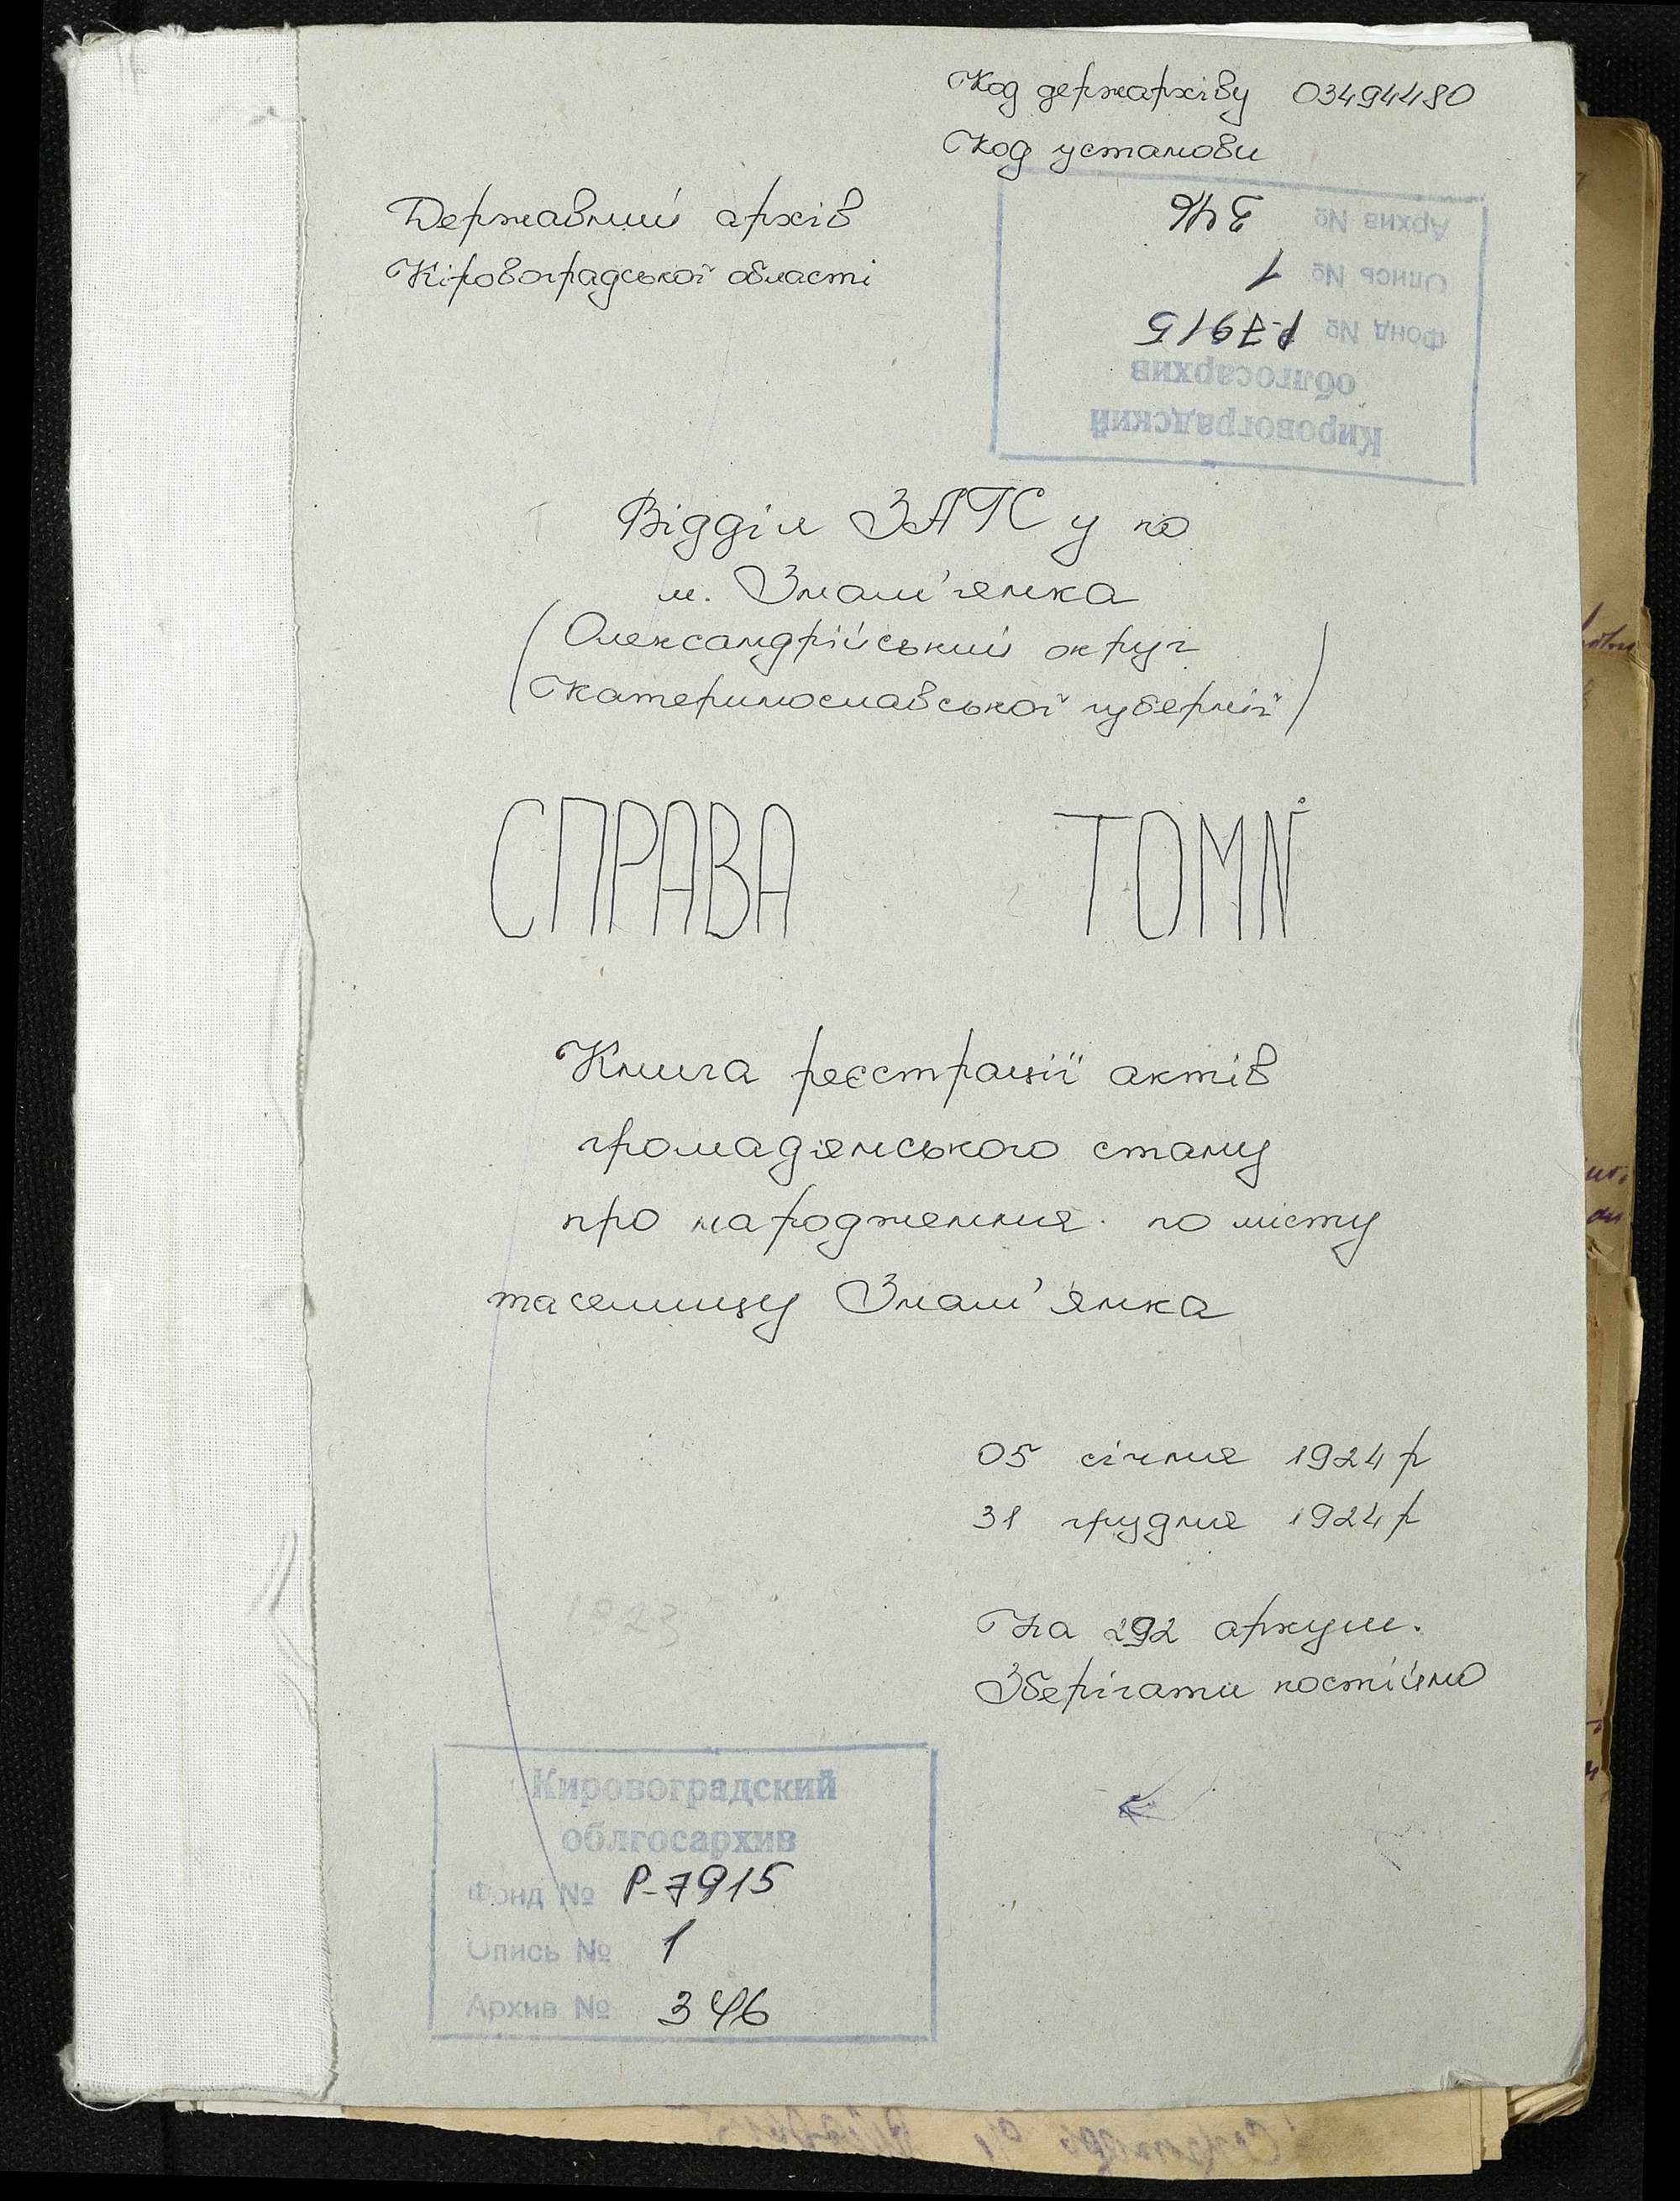 Код держархіву 03494480
Код установи
Державний архів
Кіровоградської області
Кировоградский
облгосархив
Фонд № Р-7915
Опись № 1
Архив № 346
Відділ ЗАГС у по
м. Знам'янка
(Олександрійський округ
Катеринославської губернії)
СПРАВА ТОМ №
Книга реєстрації актів
громадянського стану
про народження по місту
та селищу Знам'янка
05 січня 1924 р
31 грудня 1924 р
1923
На 292 аркуш.
Зберігати постійно
Кировоградский
облгосархив
Фонд № Р-7915
Опись № 1
Архив № 346